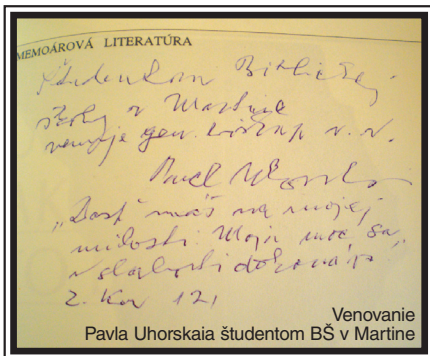 MEMOÁROVÁ LITERATÚRA
Študentom Biblickej
školy v Martine
venuje gen. biskup v. v.
Pavel Uhorskai
„Dosť máš na mojej
milosti. Moja moc sa
v slabosti dokonáva."
2. Kor 12,
Venovanie
Pavla Uhorskaia študentom BŠ v Martine